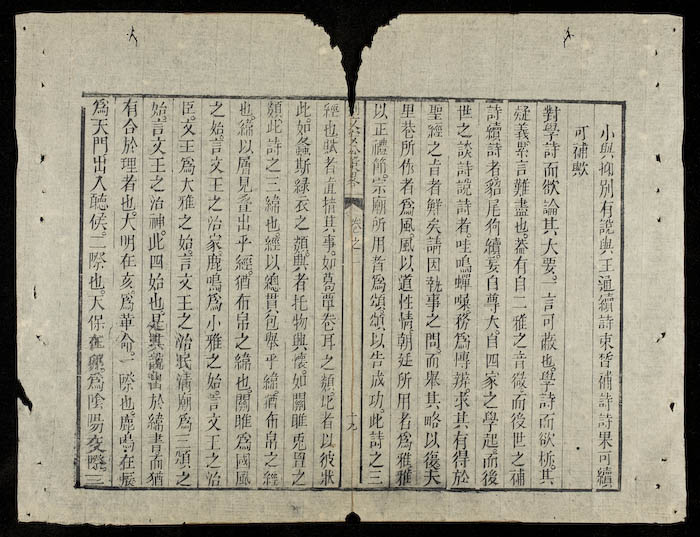 小與抑別有說與王通續詩束晳補詩詩果可續
可補歟
對學詩而欲論其大要一言可蔽也學詩而欲析其
疑義累言難盡也蓋有自二雅之音微而後世之補
詩續詩者貂尾狗續妄自尊大自四家之學起而後
世之談詩說詩者哇鳴蟬噪務爲博辨求其有得於
聖經之旨者鮮矣請因執事之問而畢其略以復夫
里巷所作者爲風風以道性情朝廷所用者爲雅雅
以正禮簡宗廟所用者爲頌頌以告成功此詩之三
卷之
十九
經也賦者直指其事如葛覃卷耳之類比者以彼狀
此如螽斯綠衣之類興者托物興懷如關雎兎罝之
類此詩之三緯也經以總貫包舉乎緯猶布帛之經
也緯以層見疊出乎經猶布帛之緯也關雎爲國風
之始言文王之治家鹿鳴爲小雅之始言文王之治
臣文王爲大雅之始言文王之治民淸廟爲三頌之
始言文王之治神此四始也是其說出於緯書而猶
有合於理者也大明在亥爲革命一際也鹿鳴在
爲天門出入聽侯二際也天保在爲陰陽交際三